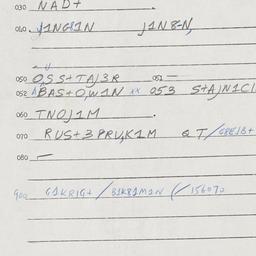 030 NAD+
040 J1NG1N J1N8-N,
050 OSS+TAJ3R 051 —
052 BAS+O,W1N xx 053 S+AJN1C1
060 TNOJ1M .
070 RUS+3PRUK1M Q T/
080 —
900 G1KR1G+/B1K81M1N (/156070